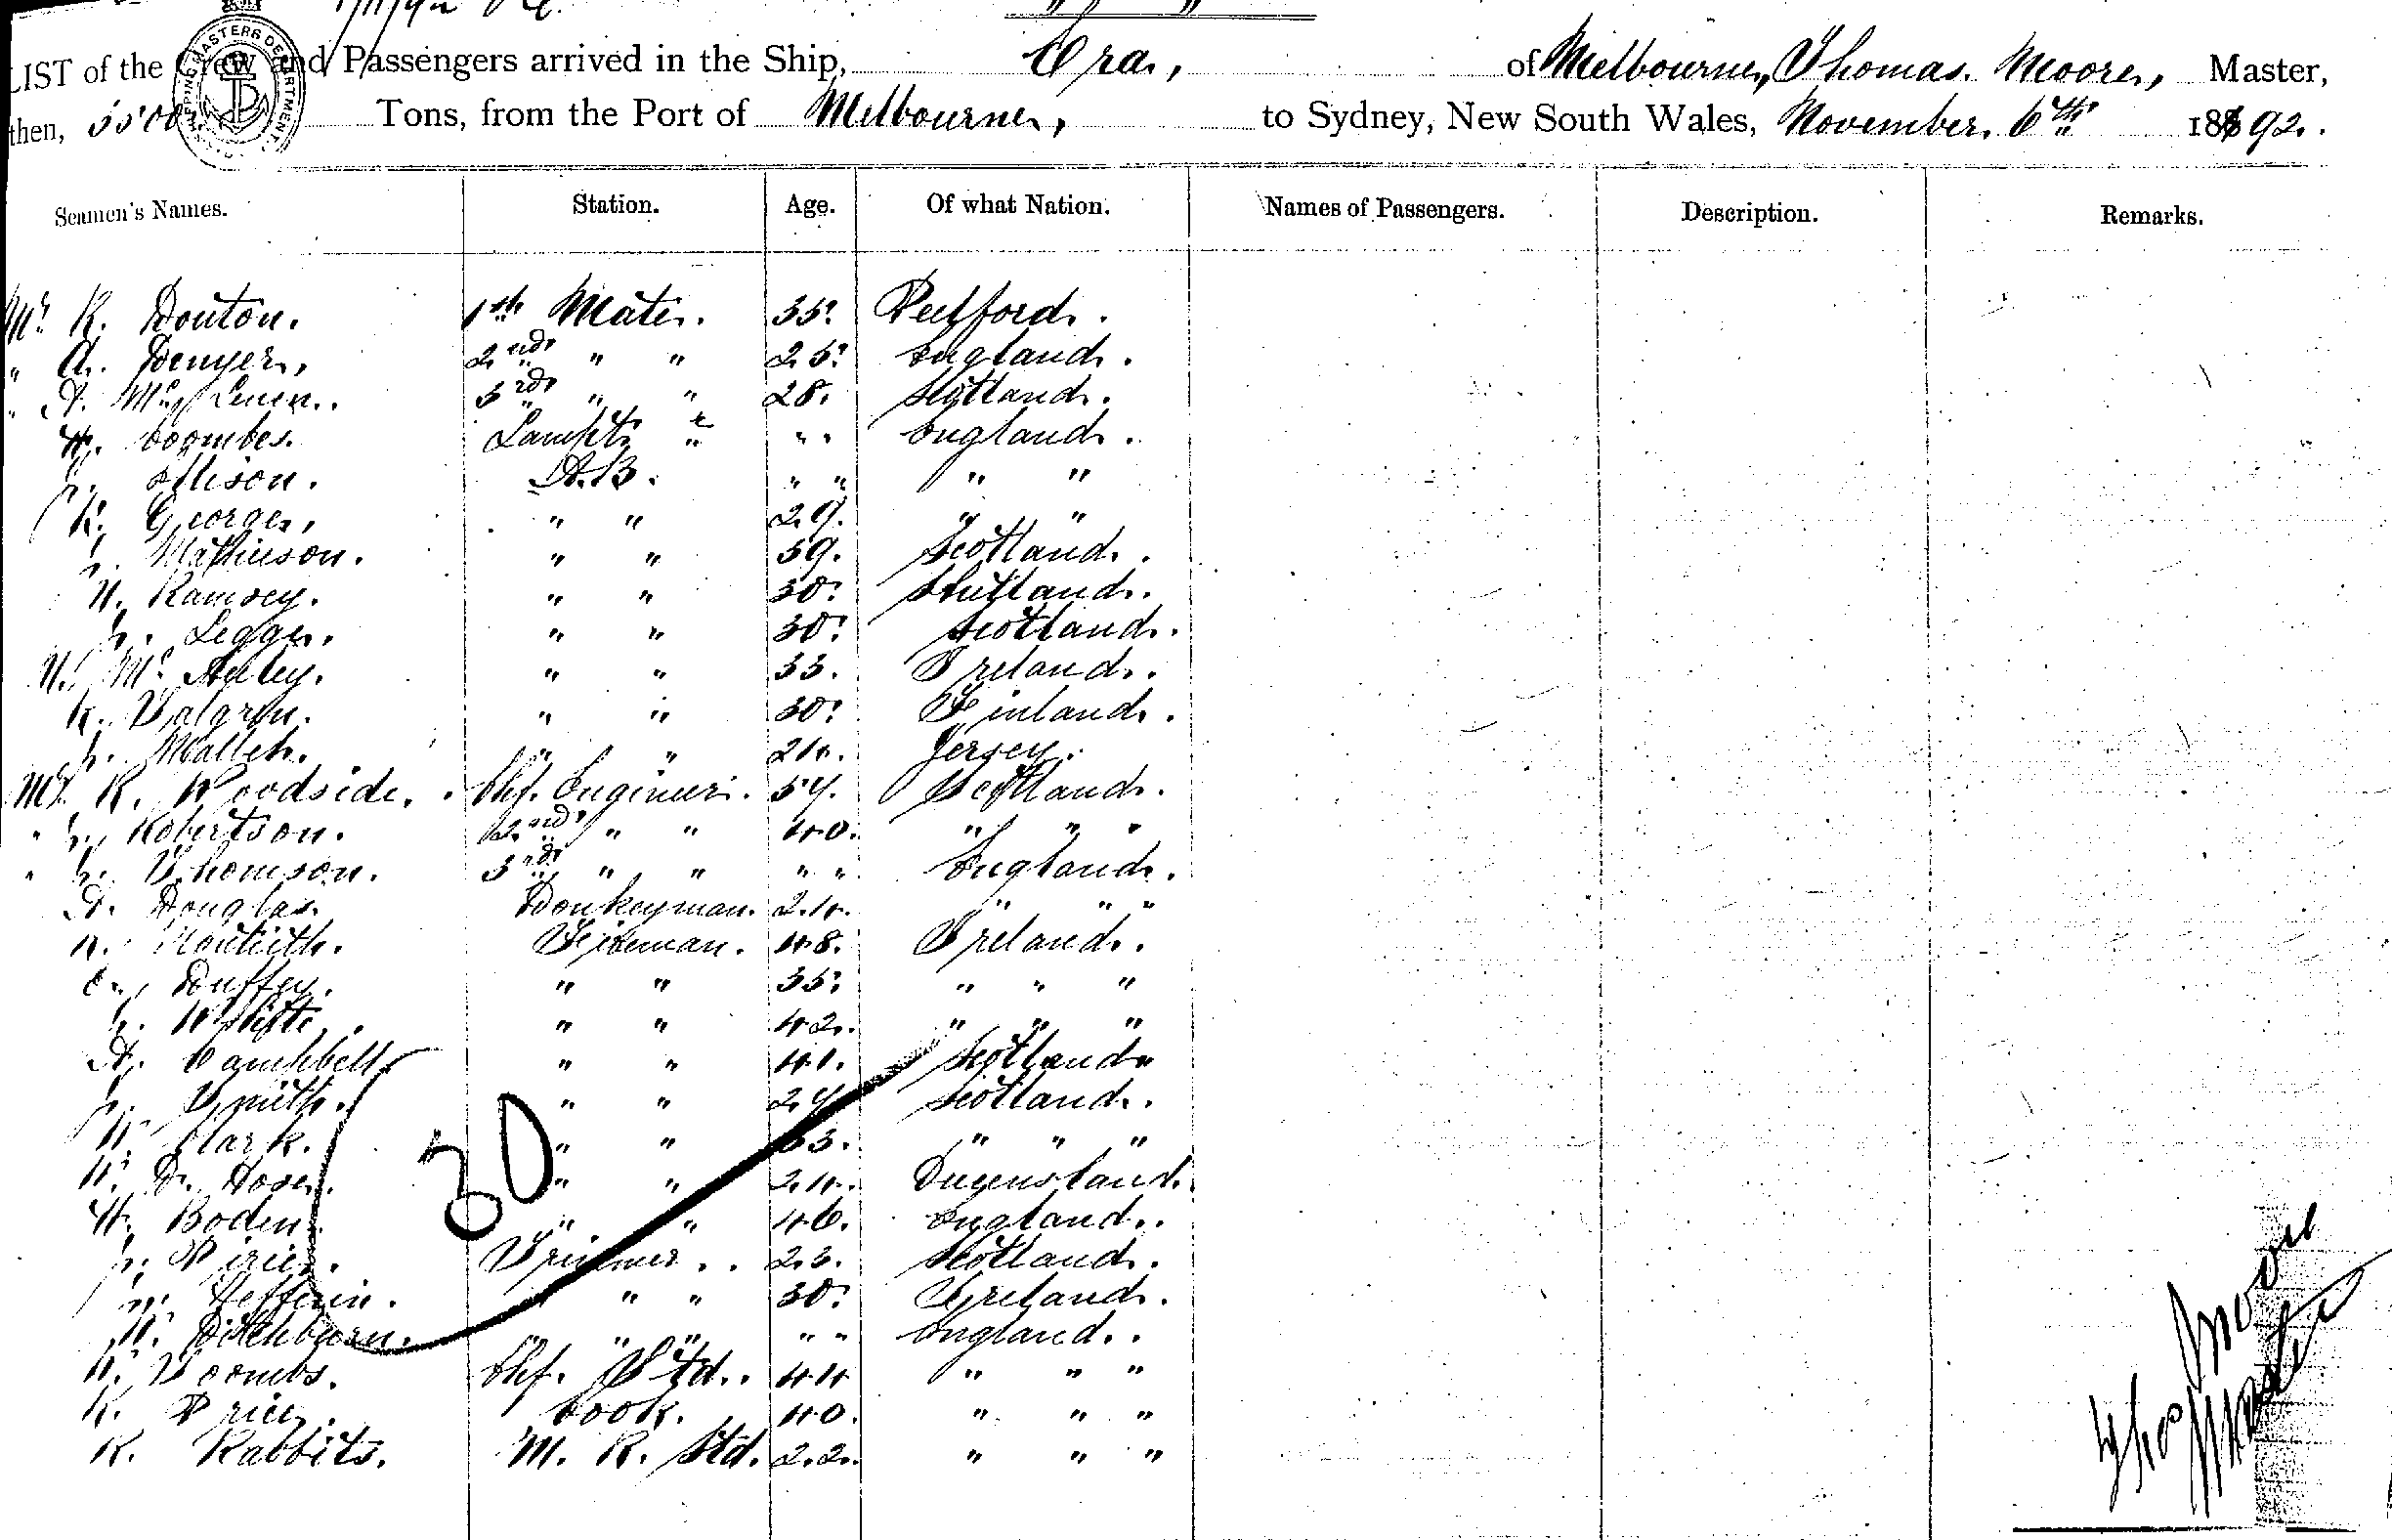 LIST of the Crew and Passengers arrived in the Ship, Era, of Melbourne, Thomas Moore, Master,
Tons, from the Port of Melbourne, to Sydney, New South Wales, November 6th 1892.
Seamen's Names. Station. Age. Of what Nation. Names of Passengers. Description. Remarks.
Mr R. Douton. 1st Mate. 35. Deptford.
" A. Denyer, 2nd " " 25. England.
" A. Mc 3rd " " 28. Scotland.
H. Coombes. Lampt " " " England.
Allison. A.B. " " " "
R. George, " " 29. " "
J. Mathieson. " " 39. Scotland.
W. Ramsey. " " 30. Shetland.
J. Legge. " " 30. Scotland.
W. Mc Auley. " " 33. Ireland.
K. Valgren. " " 30. Finland.
J. Mallet. " " 24. Jersey.
Mr R. Woodside. Chf. Engineer. 54. Scotland.
" J. Robertson. 2nd " " 40. " " "
" J. Thomson. 3rd " " " " England.
A. Douglas. Donkeyman. 24. " " "
Monteith. Fireman. 48. Ireland.
C. Duffey. " " 35. " " "
J. White. " " 42. " " "
A. Campbell. " " 41. Scotland.
J. Smith. " " 24. Scotland.
W. Clark. " " 33. " " "
W. D. Hose. " " 24. Queensland.
H. Boden. " " 46. England.
J. Pirie. Trimmer. 23. Scotland.
M. Heffernin. " " " 30. Ireland.
W. Ditchburn. " " " " " England.
W. Toombs. Chf. Std. 44 " " "
R. Price. Cook. 40. " " "
R. Rabbits. M. R. Std. 22. " " "
30
Thos Moore
Master